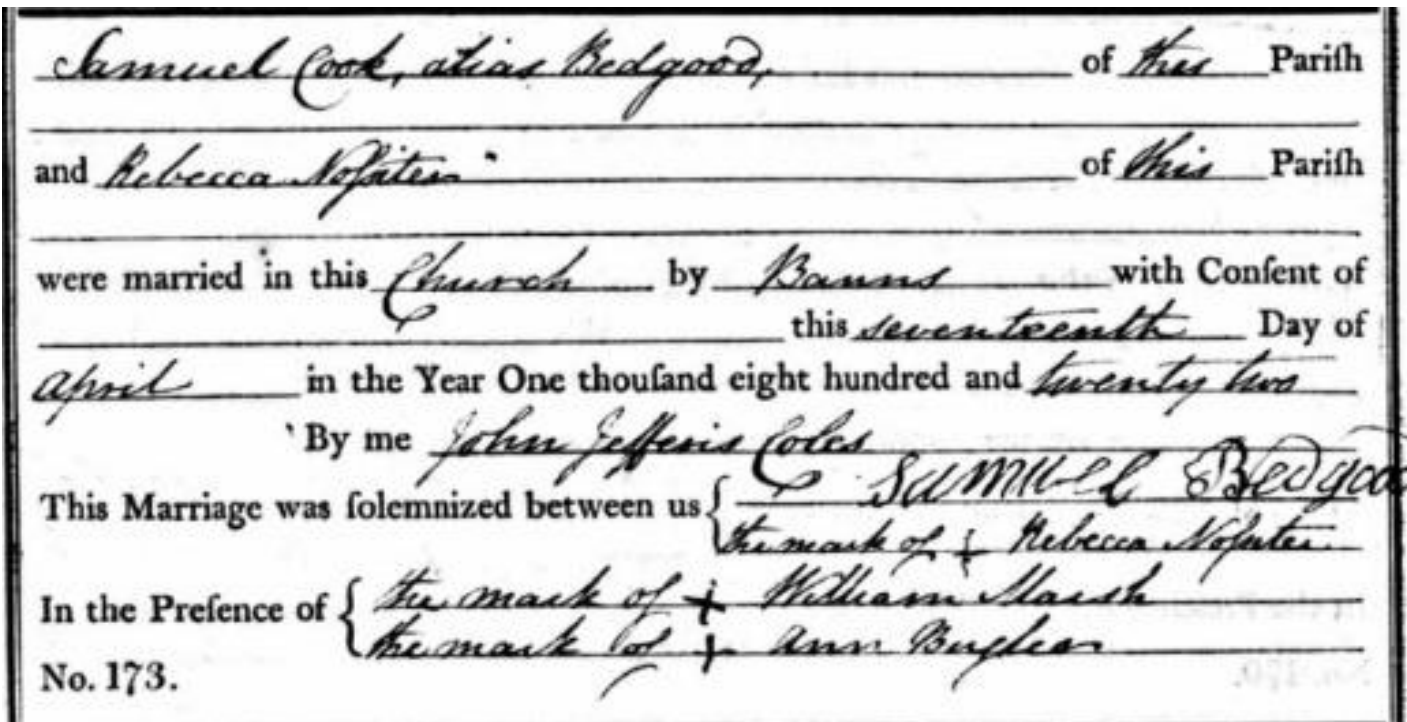 Samuel Cook, alias Bedgood, of this Pariſh
and Rebecca Noſsiter of this Pariſh
were married in this Church by Banns with Conſent of
this seventeenth Day of
April in the Year One thouſand eight hundred and twenty two
By me John Jefferis Coles
This Marriage was ſolemnized between us { Samuel Bedgood
the mark of + Rebecca Noſsiter
In the Preſence of { the mark of + William Marsh
the mark of + Ann Bugler
No. 173.